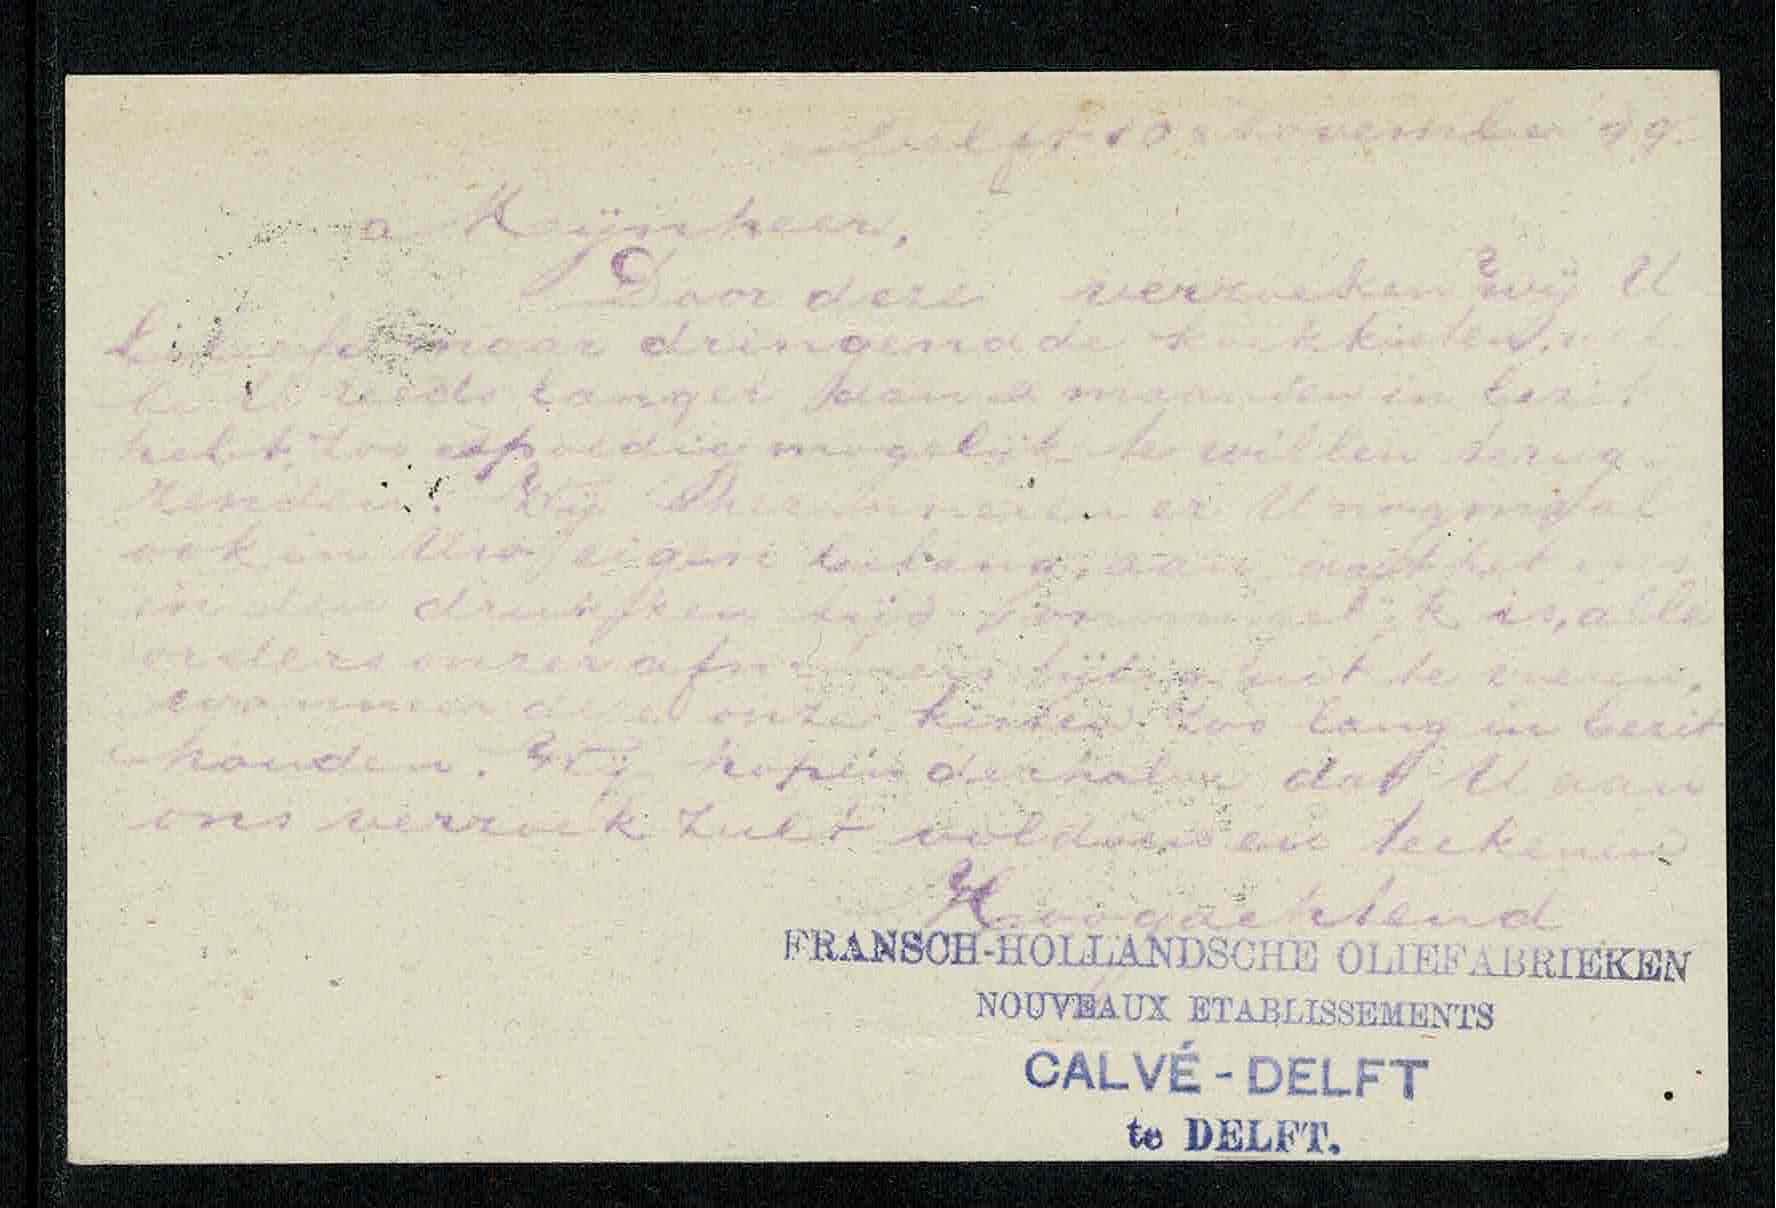 Delft 10 November 99.
Mijnheer,
Door deze verzoeken wij U
beleefd maar dringend de koekkisten, wel-
ke U reeds langer dan 2 maanden in bezit
hebt, zoo spoedig mogelijk te willen terug-
zenden. Wij herinneren er U nogmaal
ook in Uw eigen belang, aan dat het ons
in den drukken tijd onmogelijk is, alle
orders onzer afnemers tijdig uit te voeren,
wanneer deze onze kisten zoo lang in bezit
houden. Wij hopen derhalve dat U aan
ons verzoek zult voldoen en teekenen
Hoogachtend
FRANSCH-HOLLANDSCHE OLIEFABRIEKEN
NOUVEAUX ETABLISSEMENTS
CALVÉ - DELFT
te DELFT.